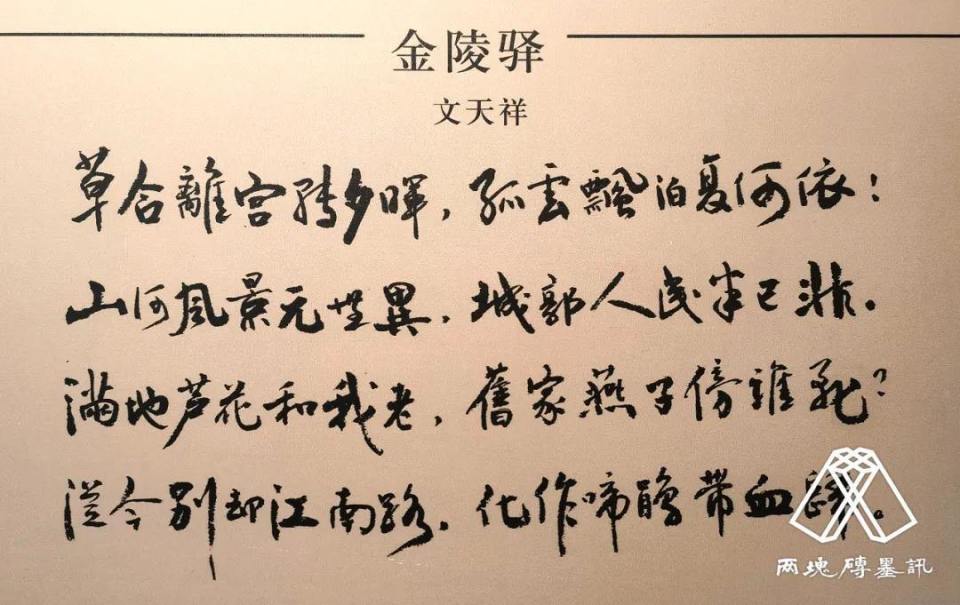 金陵驿
文天祥
草合離宮轉夕暉,孤雲飄泊复何依!
山河風景元無異,城郭人民半已非。
滿地芦花和我老,舊家燕子傍誰飛?
從今别却江南路,化作啼鵑帶血歸。
两塊磚墨訊